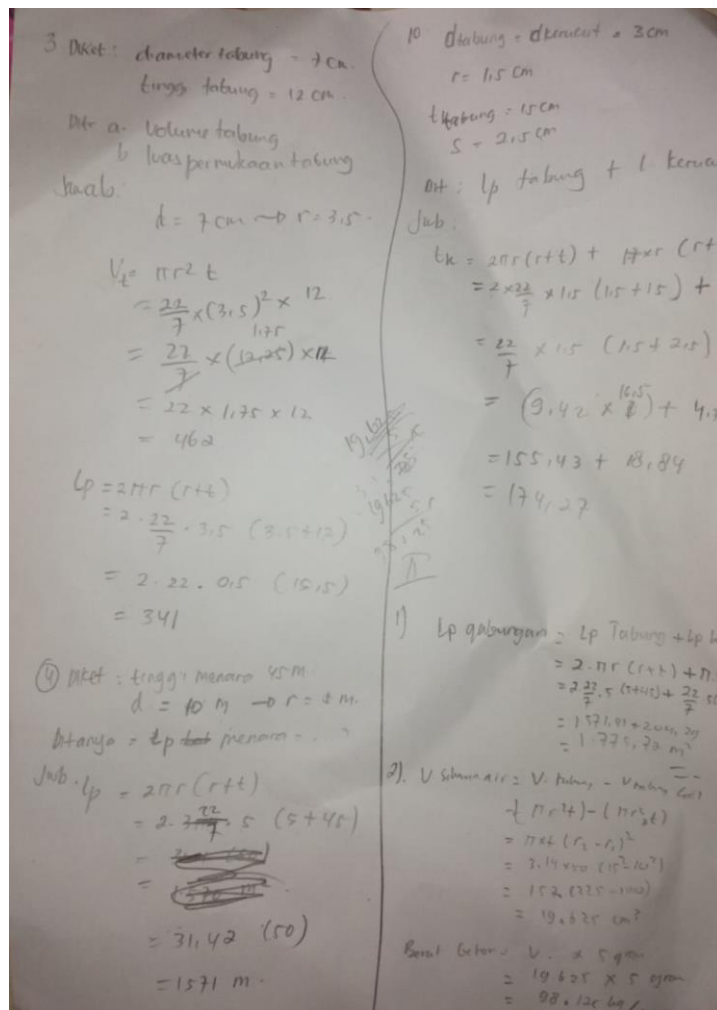 3 Diket : diameter tabung = 7 cm.
tinggi tabung = 12 cm.
Dit a. Volume tabung
b luas permukaan tabung
Jawab:
d = 7 cm → r = 3,5.
Vt = πr² t
= 22/7 × (3,5)² × 12
1,75
= 22/7 × (12,25) × 12
= 22 × 1,75 × 12
= 462
Lp = 2πr (r+t)
= 2 . 22/7 . 3,5 (3.5+12)
= 2. 22. 0,5 (15,5)
= 341
④ Diket : tinggi menara 45 m.
d = 10 m → r = 5 m.
Ditanya = Lp menara = . . ?
Jwb. Lp = 2πr (r+t)
= 2. 22/7 . 5 (5+45)
= 31,42 (50)
= 1571 m.
10 dtabung = dkerucut = 3 cm
r = 1,5 cm
ttabung = 15 cm
s = 2,5 cm
Dit : Lp tabung + l.
Jwb :
= 2πr (r+t) +
= 2 × 22/7 × 1,5 (1,5 + 15) +
= 22/7 × 1,5 (1,5 + 2,5)
16,5
= (9,42 × ) +
= 155,43 + 18,84
= 174,27
19625
II
1) Lp gabungan = Lp Tabung + Lp
= 2.πr (r+t) + π.
= 2 22/7 . 5 (5+45) + 22/7 .
= 1.775,
2). V = V. tabung - V
(πr²t) - (πr²t)
= π×t (r₂ - r₁)²
= 3.14×50 (15²-10²)
= (225 - 100)
= 19.625 cm³
Berat beton = V. × 5 gram
= 19625 × 5 gram
= 98.125 kg